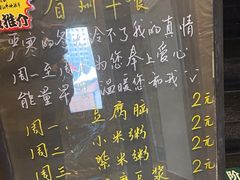 推介
眉州早餐
严寒的冬冷不了我的真情
周一至周 为您奉上爱心
能量早 温暖您和我
周一、豆腐脑 2元
周二、小米粥 2元
周三 紫米粥 2元
豆浆 2元